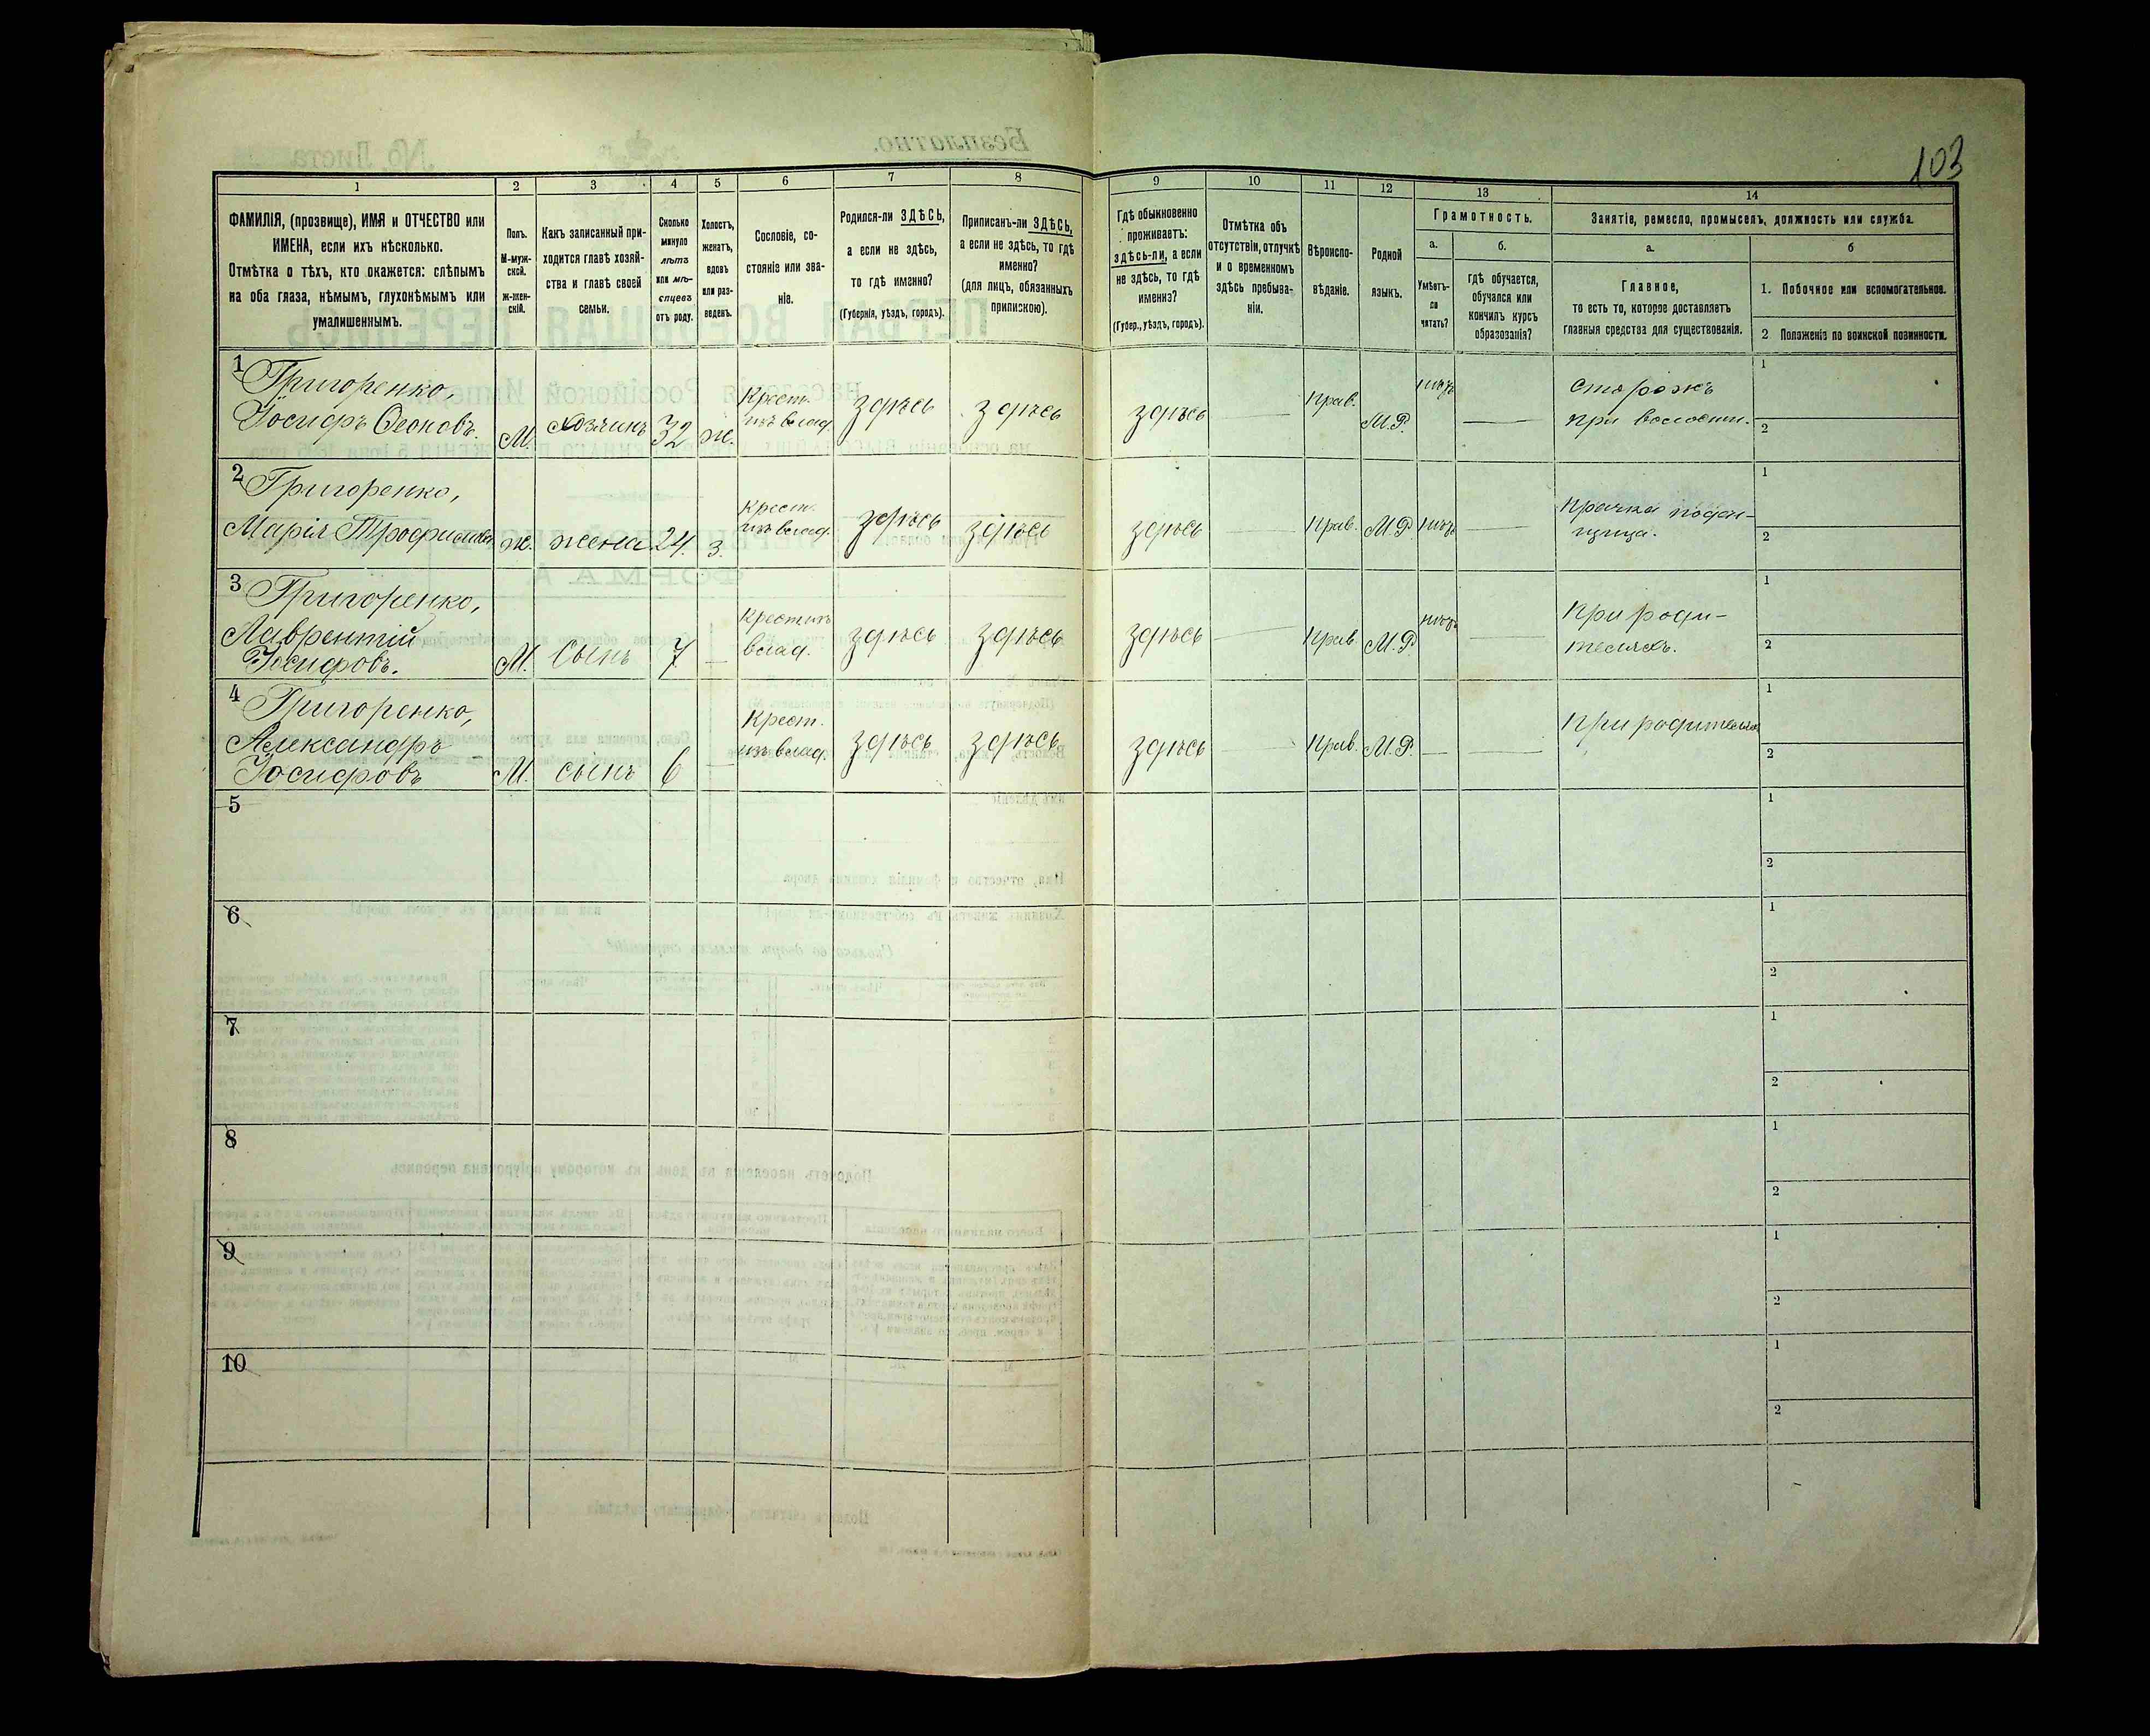 103
1 2 3 4 5 6 7 8 9 10 11 12 13 14
ФАМИЛІЯ, (прозвище), ИМЯ и ОТЧЕСТВО или
ИМЕНА, если ихъ нѣсколько.
Отмѣтка о тѣхъ, кто окажется: слѣпымъ
на оба глаза, нѣмымъ, глухонѣмымъ или
умалишеннымъ.
Полъ.
М-муж-
ской.
ж-жен-
скій.
Какъ записанный при-
ходится главѣ хозяй-
ства и главѣ своей
семьи.
Сколько
минуло
лѣтъ
или мѣ-
сяцевъ
отъ роду.
Холостъ,
женатъ,
вдовъ
или раз-
веденъ.
Сословіе, со-
стояніе или зва-
ніе.
Родился-ли ЗДѢСЬ,
а если не здѣсь,
то гдѣ именно?
(Губернія, уѣздъ, городъ).
Приписанъ-ли ЗДѢСЬ,
а если не здѣсь, то гдѣ
именно?
(для лицъ, обязанныхъ
припискою).
Гдѣ обыкновенно
проживаетъ:
здѣсь-ли, а если
не здѣсь, то гдѣ
именно?
(Губер., уѣздъ, городъ).
Отмѣтка объ
отсутствіи, отлучкѣ
и о временномъ
здѣсь пребыва-
ніи.
Вѣроиспо-
вѣданіе.
Родной
языкъ.
Грамотность.
а.
Умѣетъ-
ли
читать?
б.
гдѣ обучается,
обучался или
кончилъ курсъ
образованія?
Занятіе, ремесло, промыселъ, должность или служба.
а.
Главное,
то есть то, которое доставляетъ
главныя средства для существованія.
б
1. Побочное или вспомогательное.
2 Положеніе по воинской повинности.
1 Григоренко,
Іосифъ Леоновъ. М. хозяинъ 32 ж. Крест. изъ влад. здѣсь здѣсь здѣсь — Прав. М.Р. нѣтъ — сторожъ
при волости. 1 2
2 Григоренко,
Марія Трофимова ж. жена 24. з. Крест. изъ влад. здѣсь здѣсь здѣсь — Прав. М.Р. нѣтъ — Прачка поден-
щица. 1 2
3 Григоренко,
Лаврентій
Іосифовъ. М. Сынъ 7 — Крест изъ влад. здѣсь здѣсь здѣсь — Прав М.Р. нѣтъ — При роди-
теляхъ. 1 2
4 Григоренко,
Александръ
Іосифовъ М. сынъ 6 — Крест. изъ влад. здѣсь здѣсь здѣсь — Прав. М.Р. — — При родителях 1 2
5 1 2
6 1 2
7 1 2
8 1 2
9 1 2
10 1 2